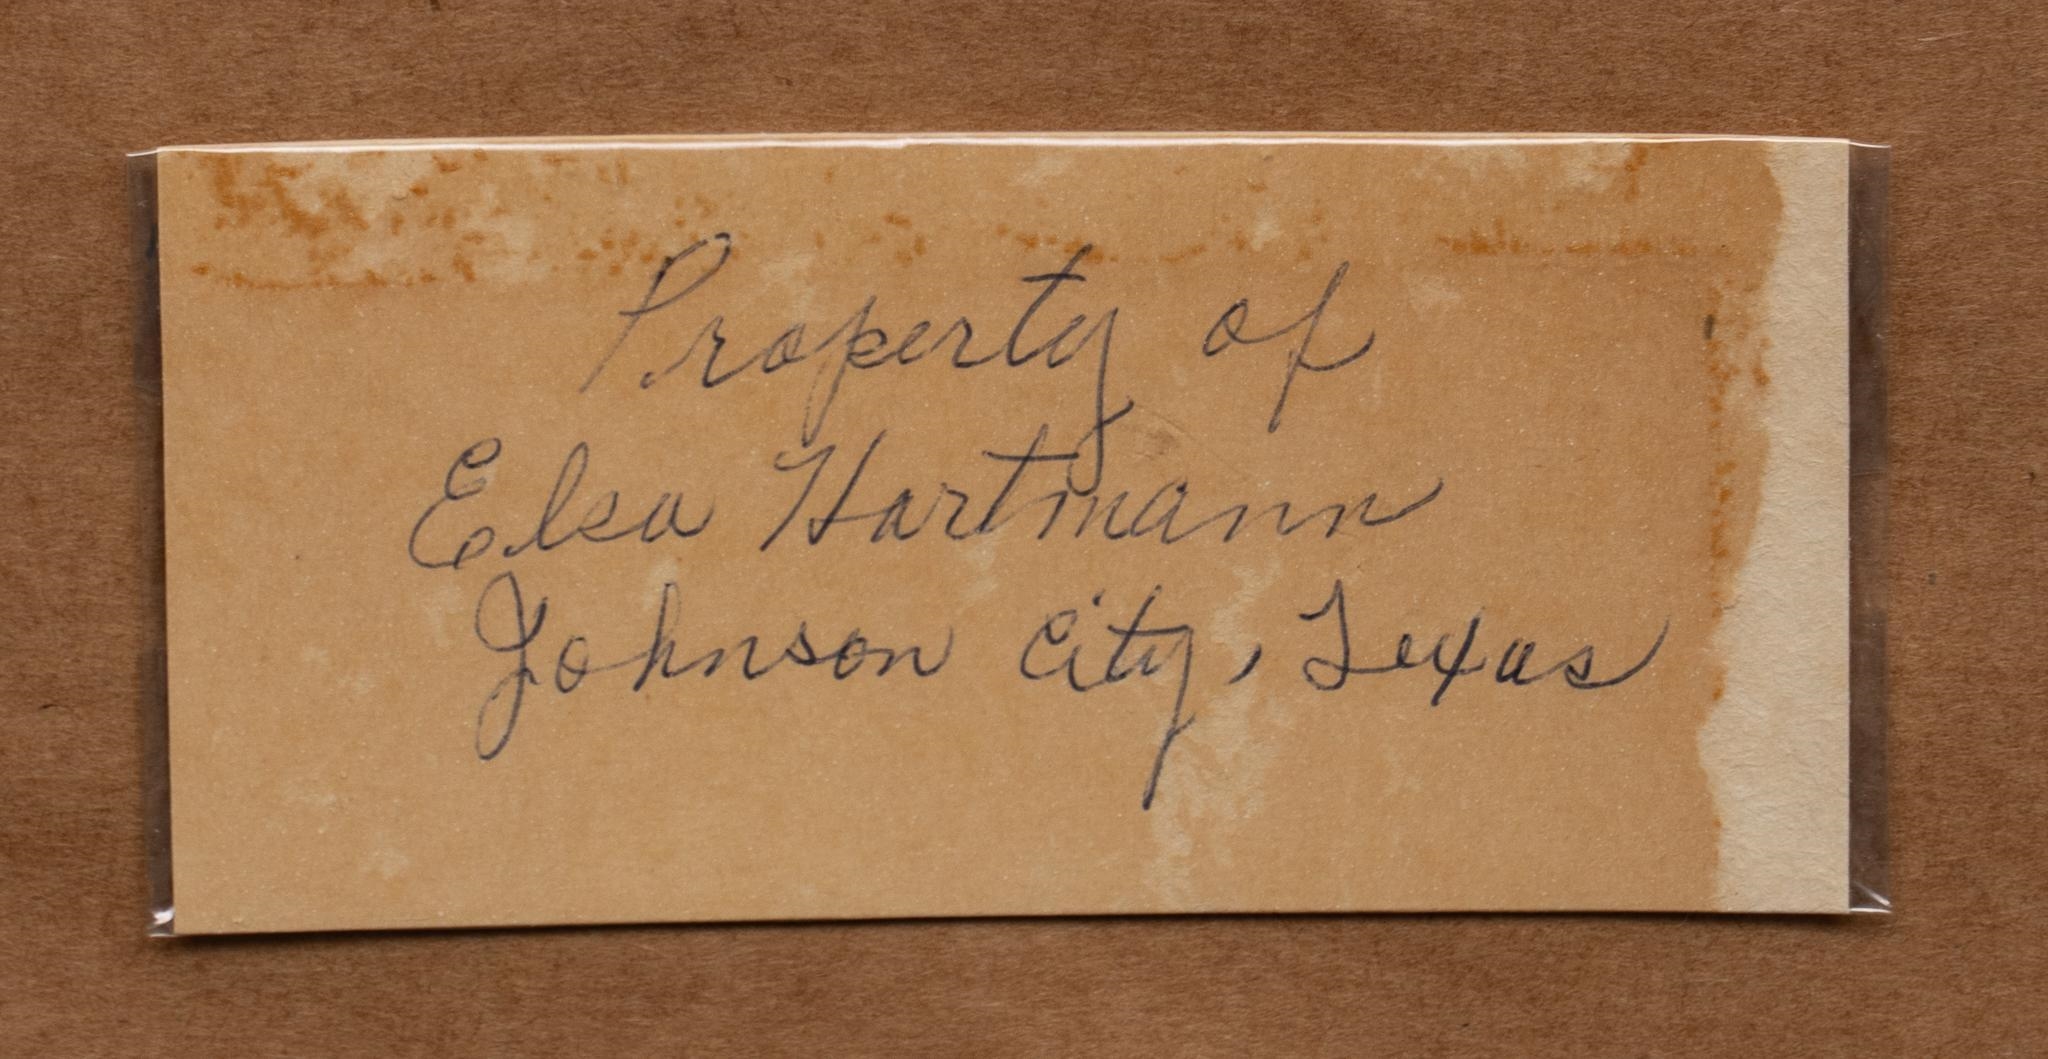 Property of
Elsa Hartmann
Johnson City, Texas